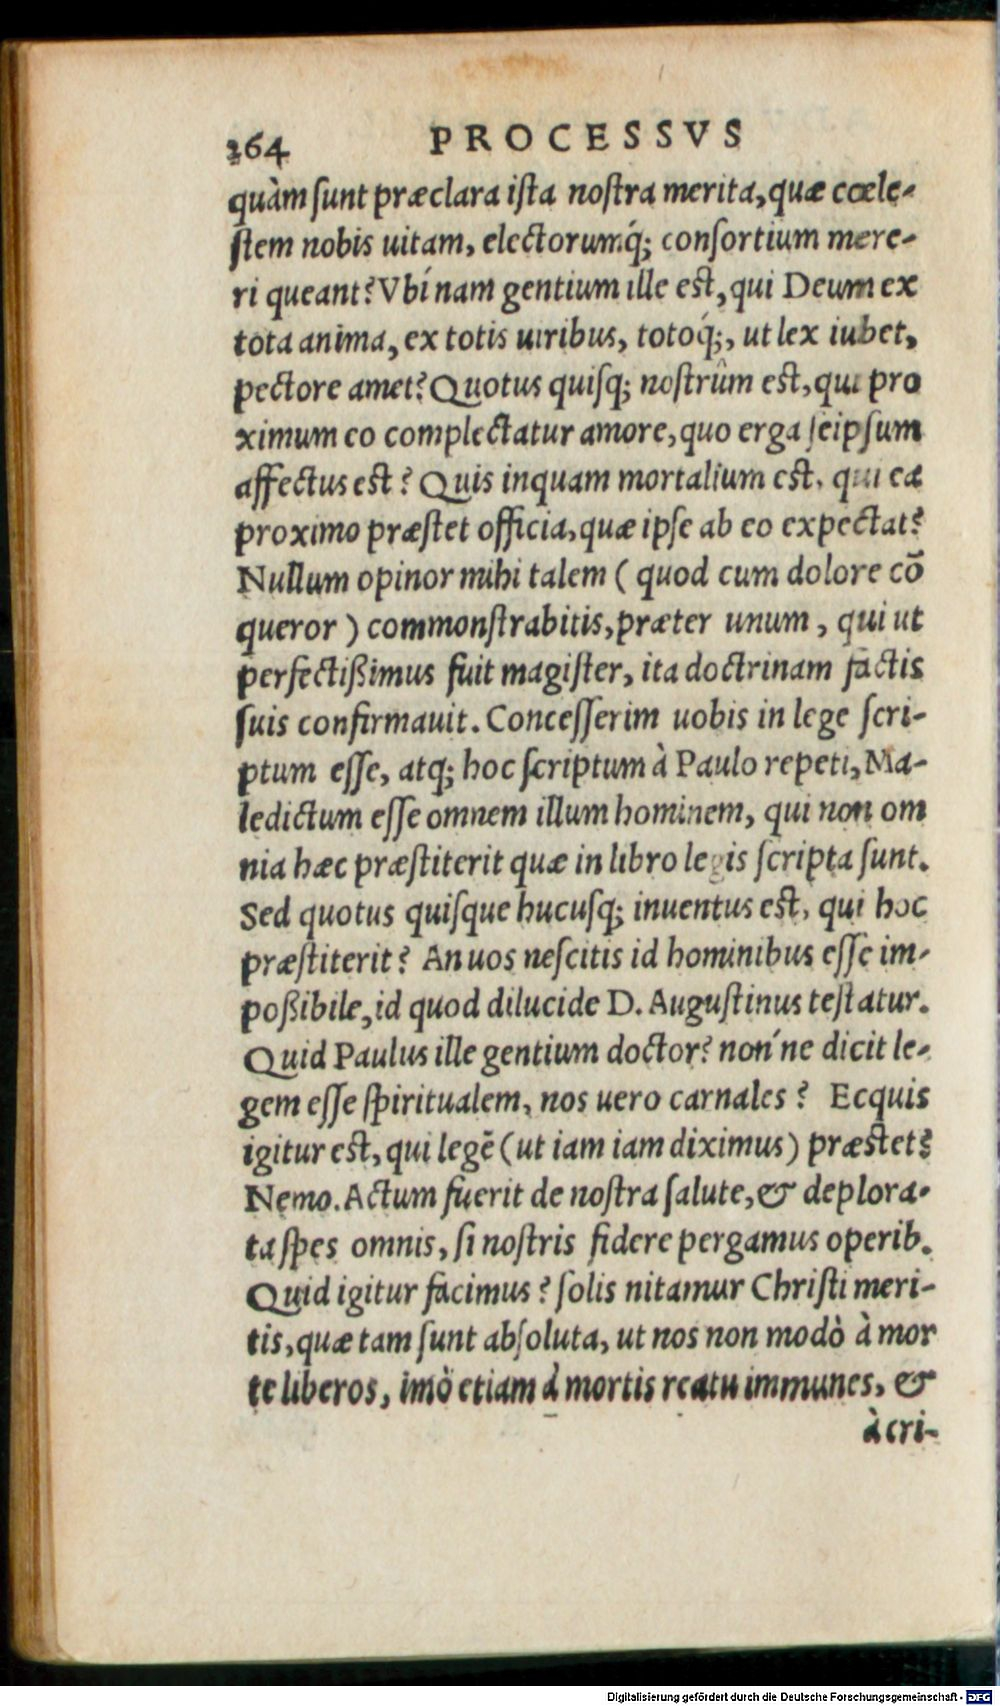 264 PROCESSVS
quàm ſunt præclara iſta noſtra merita, quæ cœle-
ſtem nobis uitam, electorumq́; conſortium mere-
ri queant? Vbí nam gentium ille est, qui Deum ex
tota anima, ex totis uiribus, totoq́;, ut lex iubet,
pectore amet? Quotus quiſq; noſtrûm est, qui pro
ximum eo complectatur amore, quo erga ſeipſum
affectus est? Quis inquam mortalium est, qui ea
proximo præſtet officia, quæ ipſe ab eo expectat?
Nullum opinor mihi talem ( quod cum dolore cō
queror ) commonſtrabitis, præter unum, qui ut
perfectißimus fuit magiſter, ita doctrinam factis
ſuis confirmauit. Conceſſerim uobis in lege ſcri-
ptum eſſe, atq; hoc ſcriptum à Paulo repeti, Ma-
ledictum eſſe omnem illum hominem, qui non om
nia hæc præſtiterit quæ in libro legis ſcripta ſunt.
Sed quotus quiſque hucuſq; inuentus est, qui hoc
præſtiterit? An uos neſcitis id hominibus eſſe im-
poßibile, id quod dilucide D. Auguſtinus teſtatur.
Quid Paulus ille gentium doctor? non´ne dicit le-
gem eſſe ſpiritualem, nos uero carnales? Ecquis
igitur est, qui legē (ut iam iam diximus) præstet?
Nemo. Actum fuerit de noſtra ſalute, & deplora-
ta ſpes omnis, ſi noſtris fidere pergamus operib.
Quid igitur facimus? ſolis nitamur Chriſti meri-
tis, quæ tam ſunt abſoluta, ut nos non modò à mor
te liberos, imò etiam à mortis reatu immunes, &
à cri-
Digitalisierung gefördert durch die Deutsche Forschungsgemeinschaft - DFG